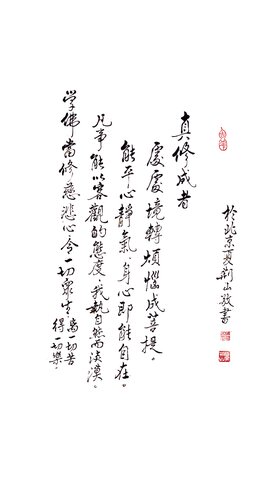 学佛當修慈悲心令一切眾生
離一切苦
得一切樂。
凡事能以客觀的態度，我執自然而淡漠。
能平心靜氣、身心即能自在。
處處境轉煩惱成菩提。
真修成者
於北京夏荊山敬書